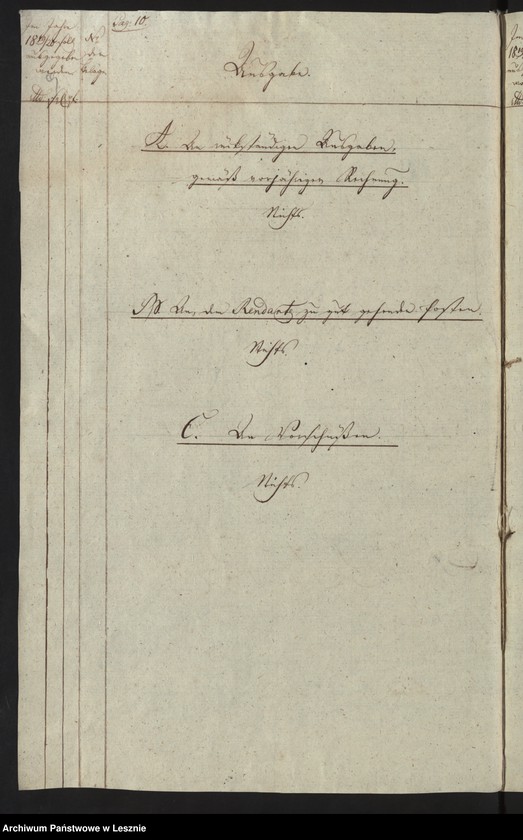 Im Jahre
1819/20 soll
ausgegeben
werden
No
der
Belage
Pag. 10.
Ausgabe.
A. An rückständigen Ausgaben.
gemäß vorjähriger Rechnung.
Nichts.
B. An, dem Rendantz zu gut gehende Posten.
Nichts.
C. An Vorschüßen.
Nichts.
Archiwum Państwowe w Lesznie